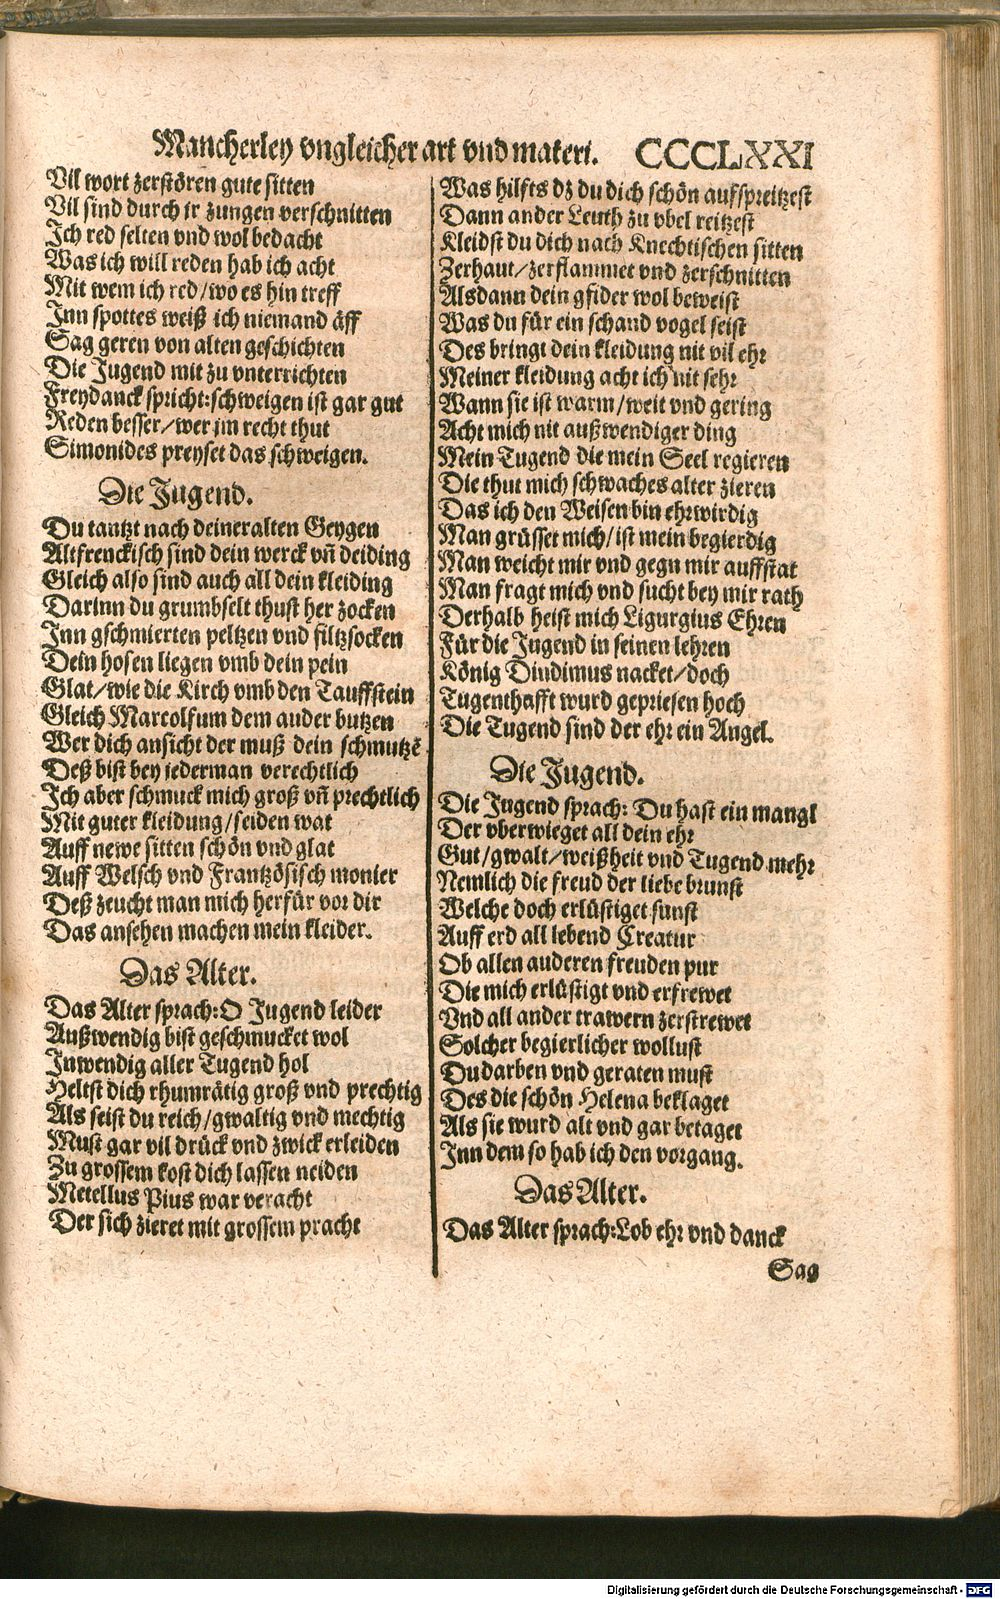 Mancherley vngleicher art vnd materi. CCCLXXI
Vil wort zerstören gute sitten
Vil sind durch ir zungen verschnitten
Ich red selten vnd wol bedacht
Was ich will reden hab ich acht
Mit wem ich red/wo es hin treff
Inn spottes weiß ich niemand äff
Sag geren von alten geschichten
Die Jugend mit zu vnterrichten
Freydanck spricht:schweigen ist gar gut
Reden besser/wer jm recht thut
Simonides preyset das schweigen.
Die Jugend.
Du tantzt nach deiner alten Geygen
Altfrenckisch sind dein werck vñ deiding
Gleich also sind auch all dein kleiding
Darinn du grumbselt thust her zocken
Inn gschmierten peltzen vnd filtzsocken
Dein hosen liegen vmb dein pein
Glat/wie die Kirch vmb den Tauffstein
Gleich Marcolfum dem ander butzen
Wer dich ansicht der muß dein schmutzē
Deß bist bey jederman verechtlich
Ich aber schmuck mich groß vñ prechtlich
Mit guter kleidung/seiden wat
Auff newe sitten schön vnd glat
Auff Welsch vnd Frantzösisch monier
Deß zeucht man mich herfür vor dir
Das ansehen machen mein kleider.
Das Alter.
Das Alter sprach:O Jugend leider
Außwendig bist geschmucket wol
Inwendig aller Tugend hol
Heltst dich rhumrätig groß vnd prechtig
Als seist du reich/gwaltig vnd mechtig
Must gar vil drück vnd zwick erleiden
Zu grossem kost dich lassen neiden
Metellus Pius war veracht
Der sich zieret mit grossem pracht
Was hilfts dz du dich schön auffspreitzest
Dann ander Leuth zu vbel reitzest
Kleidst du dich nach Knechtischen sitten
Zerhaut/zerflammet vnd zerschnitten
Alsdann dein gfider wol beweist
Was du für ein schand vogel seist
Des bringt dein kleidung nit vil ehr
Meiner kleidung acht ich nit sehr
Wann sie ist warm/weit vnd gering
Acht mich nit außwendiger ding
Mein Tugend die mein Seel regieren
Die thut mich schwaches alter zieren
Das ich den Weisen bin ehrwirdig
Man grüsset mich/ist mein begierdig
Man weicht mir vnd gegn mir auffstat
Man fragt mich vnd sucht bey mir rath
Derhalb heist mich Ligurgius Ehren
Für die Jugend in seinen lehren
König Dindimus nacket/doch
Tugenthafft wurd gepriesen hoch
Die Tugend sind der ehr ein Angel.
Die Jugend.
Die Jugend sprach: Du hast ein mangl
Der vberwieget all dein ehr
Gut/gwalt/weißheit vnd Tugend mehr
Nemlich die freud der liebe brunst
Welche doch erlüstiget sunst
Auff erd all lebend Creatur
Ob allen anderen freuden pur
Die mich erlüstigt vnd erfrewet
Vnd all ander trawern zerstrewet
Solcher begierlicher wollust
Du darben vnd geraten must
Des die schön Helena beklaget
Als sie wurd alt vnd gar betaget
Inn dem so hab ich den vorgang.
Das Alter.
Das Alter sprach:Lob ehr vnd danck
Sag
Digitalisierung gefördert durch die Deutsche Forschungsgemeinschaft - DFG